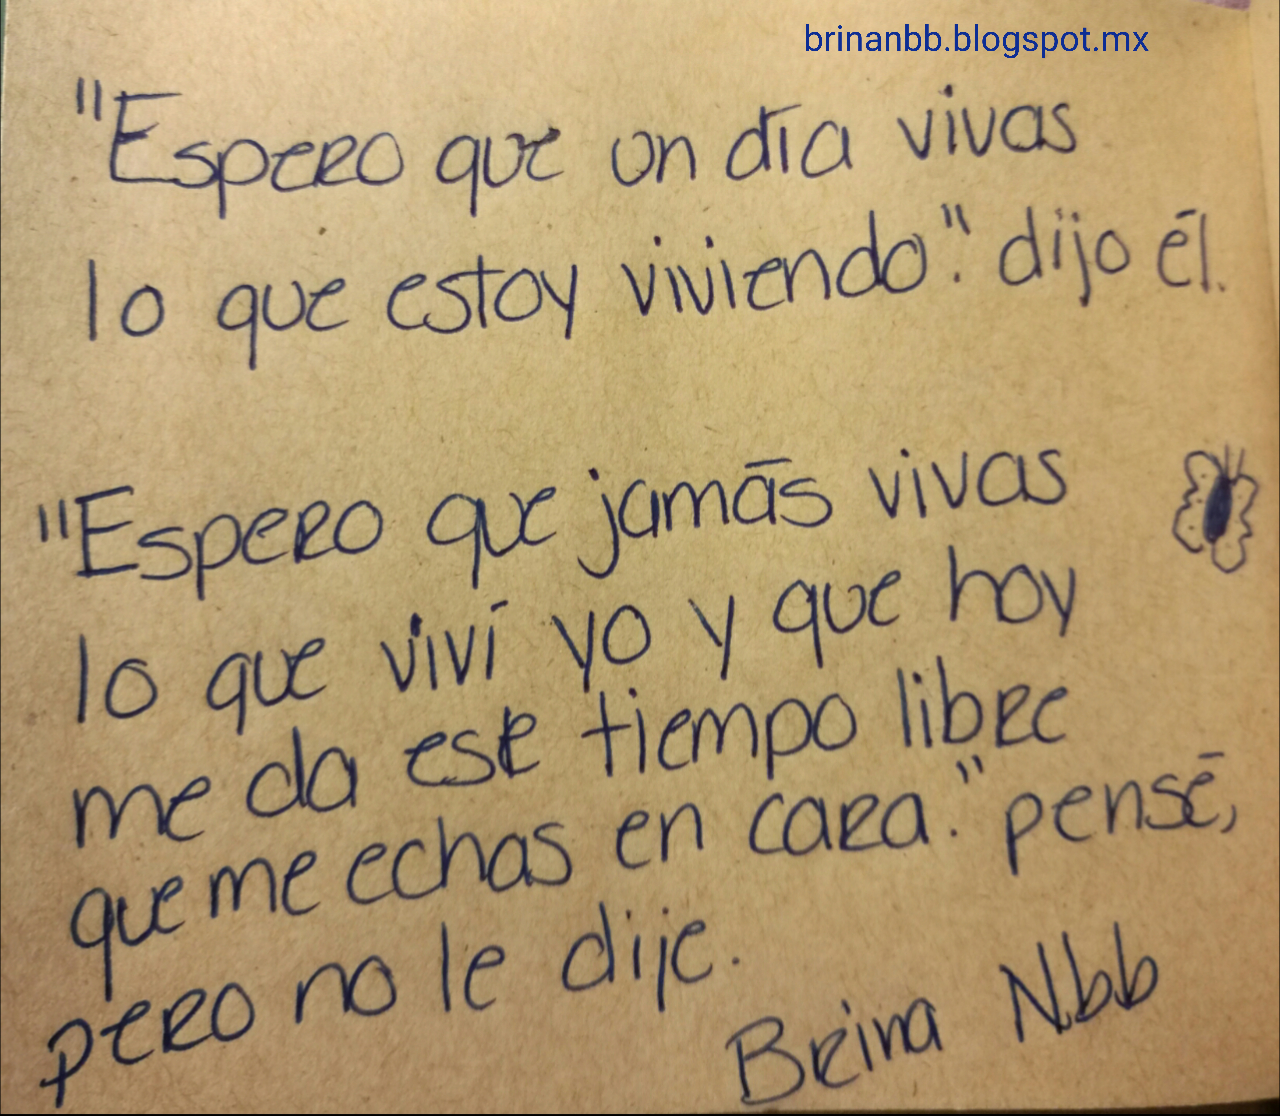 brinanbb.blogspot.mx
"Espero que un día vivas
lo que estoy viviendo." dijo él.
"Espero que jamás vivas
lo que viví yo y que hoy
me da ese tiempo libre
que me echas en cara." pensé,
pero no le dije.
Brina Nbb